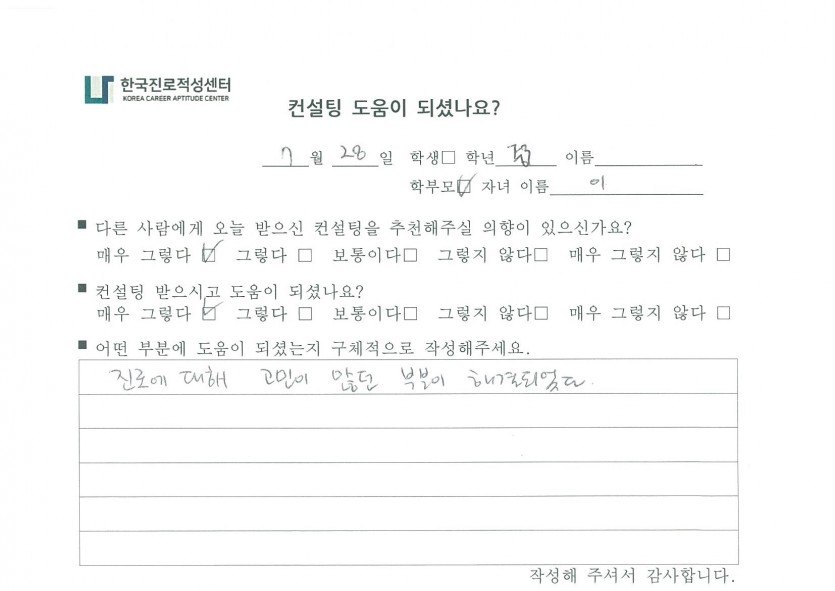 한국진로적성센터
KOREA CAREER APTITUDE CENTER
컨설팅 도움이 되셨나요?
7 월 28 일 학생□ 학년 이름
학부모☑ 자녀 이름 이
■ 다른 사람에게 오늘 받으신 컨설팅을 추천해주실 의향이 있으신가요?
매우 그렇다 ☑ 그렇다 □ 보통이다□ 그렇지 않다□ 매우 그렇지 않다 □
■ 컨설팅 받으시고 도움이 되셨나요?
매우 그렇다 ☑ 그렇다 □ 보통이다□ 그렇지 않다□ 매우 그렇지 않다 □
■ 어떤 부분에 도움이 되셨는지 구체적으로 작성해주세요.
진로에 대해 고민이 많던 부분이 해결되었다.
작성해 주셔서 감사합니다.